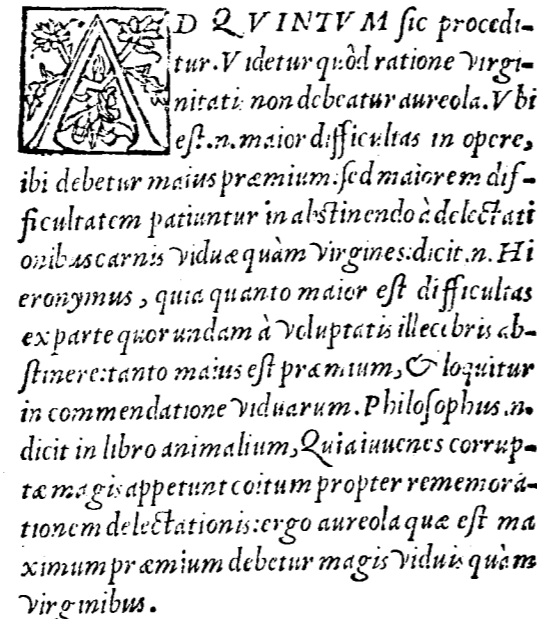 AD QVINTVM sic procedi-
tur. Videtur quòd ratione virgi-
nitati non debeatur aureola. Vbi
est.n. maior difficultas in opere,
ibi debetur maius præmium: sed maiorem dif-
ficultatem patiuntur in abstinendo à delectati
onibus carnis viduæ quàm virgines: dicit.n. Hi
eronymus, quia quanto maior est difficultas
ex parte quorundam à voluptatis illecebris ab-
stinere: tanto maius est præmium, & loquitur
in commendatione viduarum. Philosophus.n.
dicit in libro animalium, Quia iuuenes corrup-
tæ magis appetunt coitum propter rememora-
tionem delectationis: ergo aureola quæ est ma
ximum præmium debetur magis viduis quàm
virginibus.